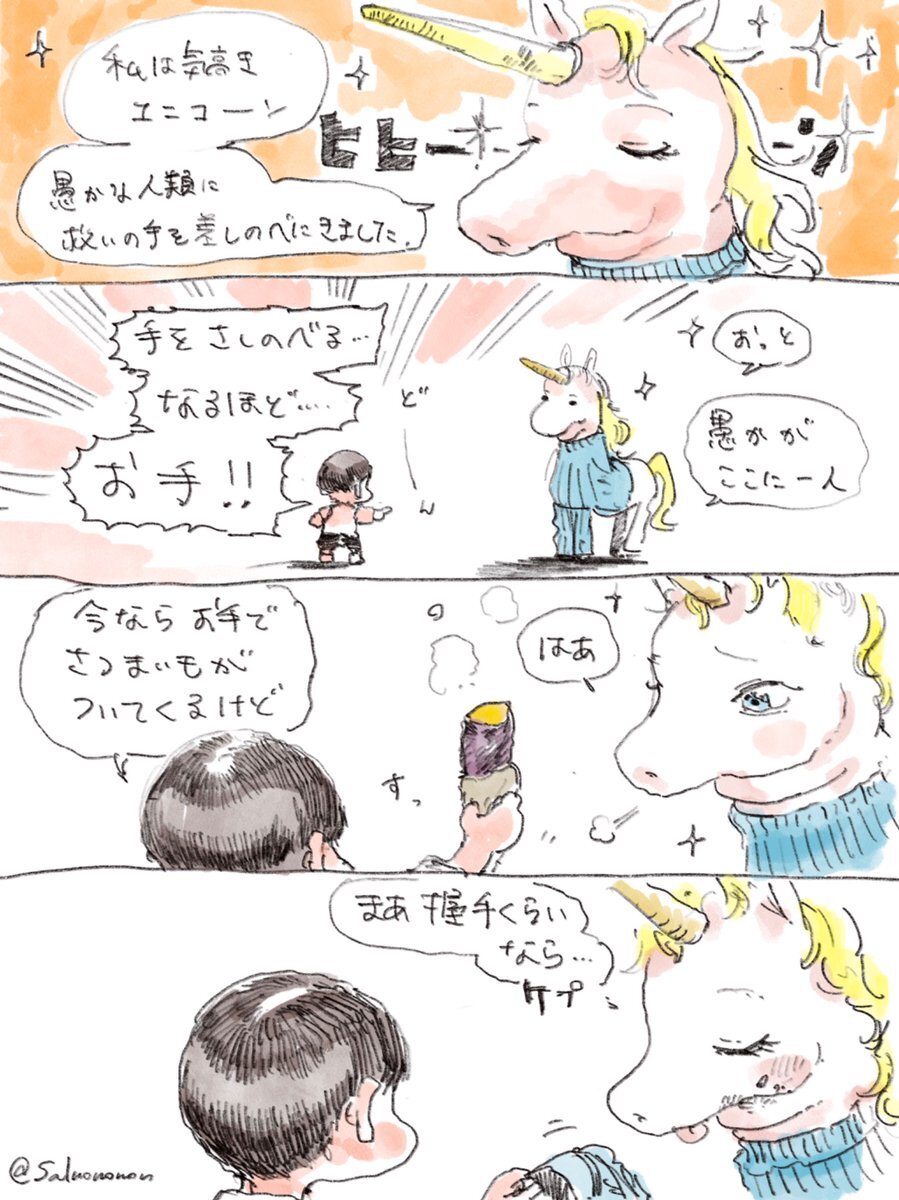 私は気高き
ユニコーン
愚かな人類に
救いの手を差しのべにきました。
ヒヒーン
おっと
手をさしのべる…
なるほど‥‥
お手!!
どーん
愚かが
ここに一人
今ならお手で
さつまいもが
ついてくるけど
はあ
すっ
まあ握手くらい
なら…
ケプ
@Salmonomon